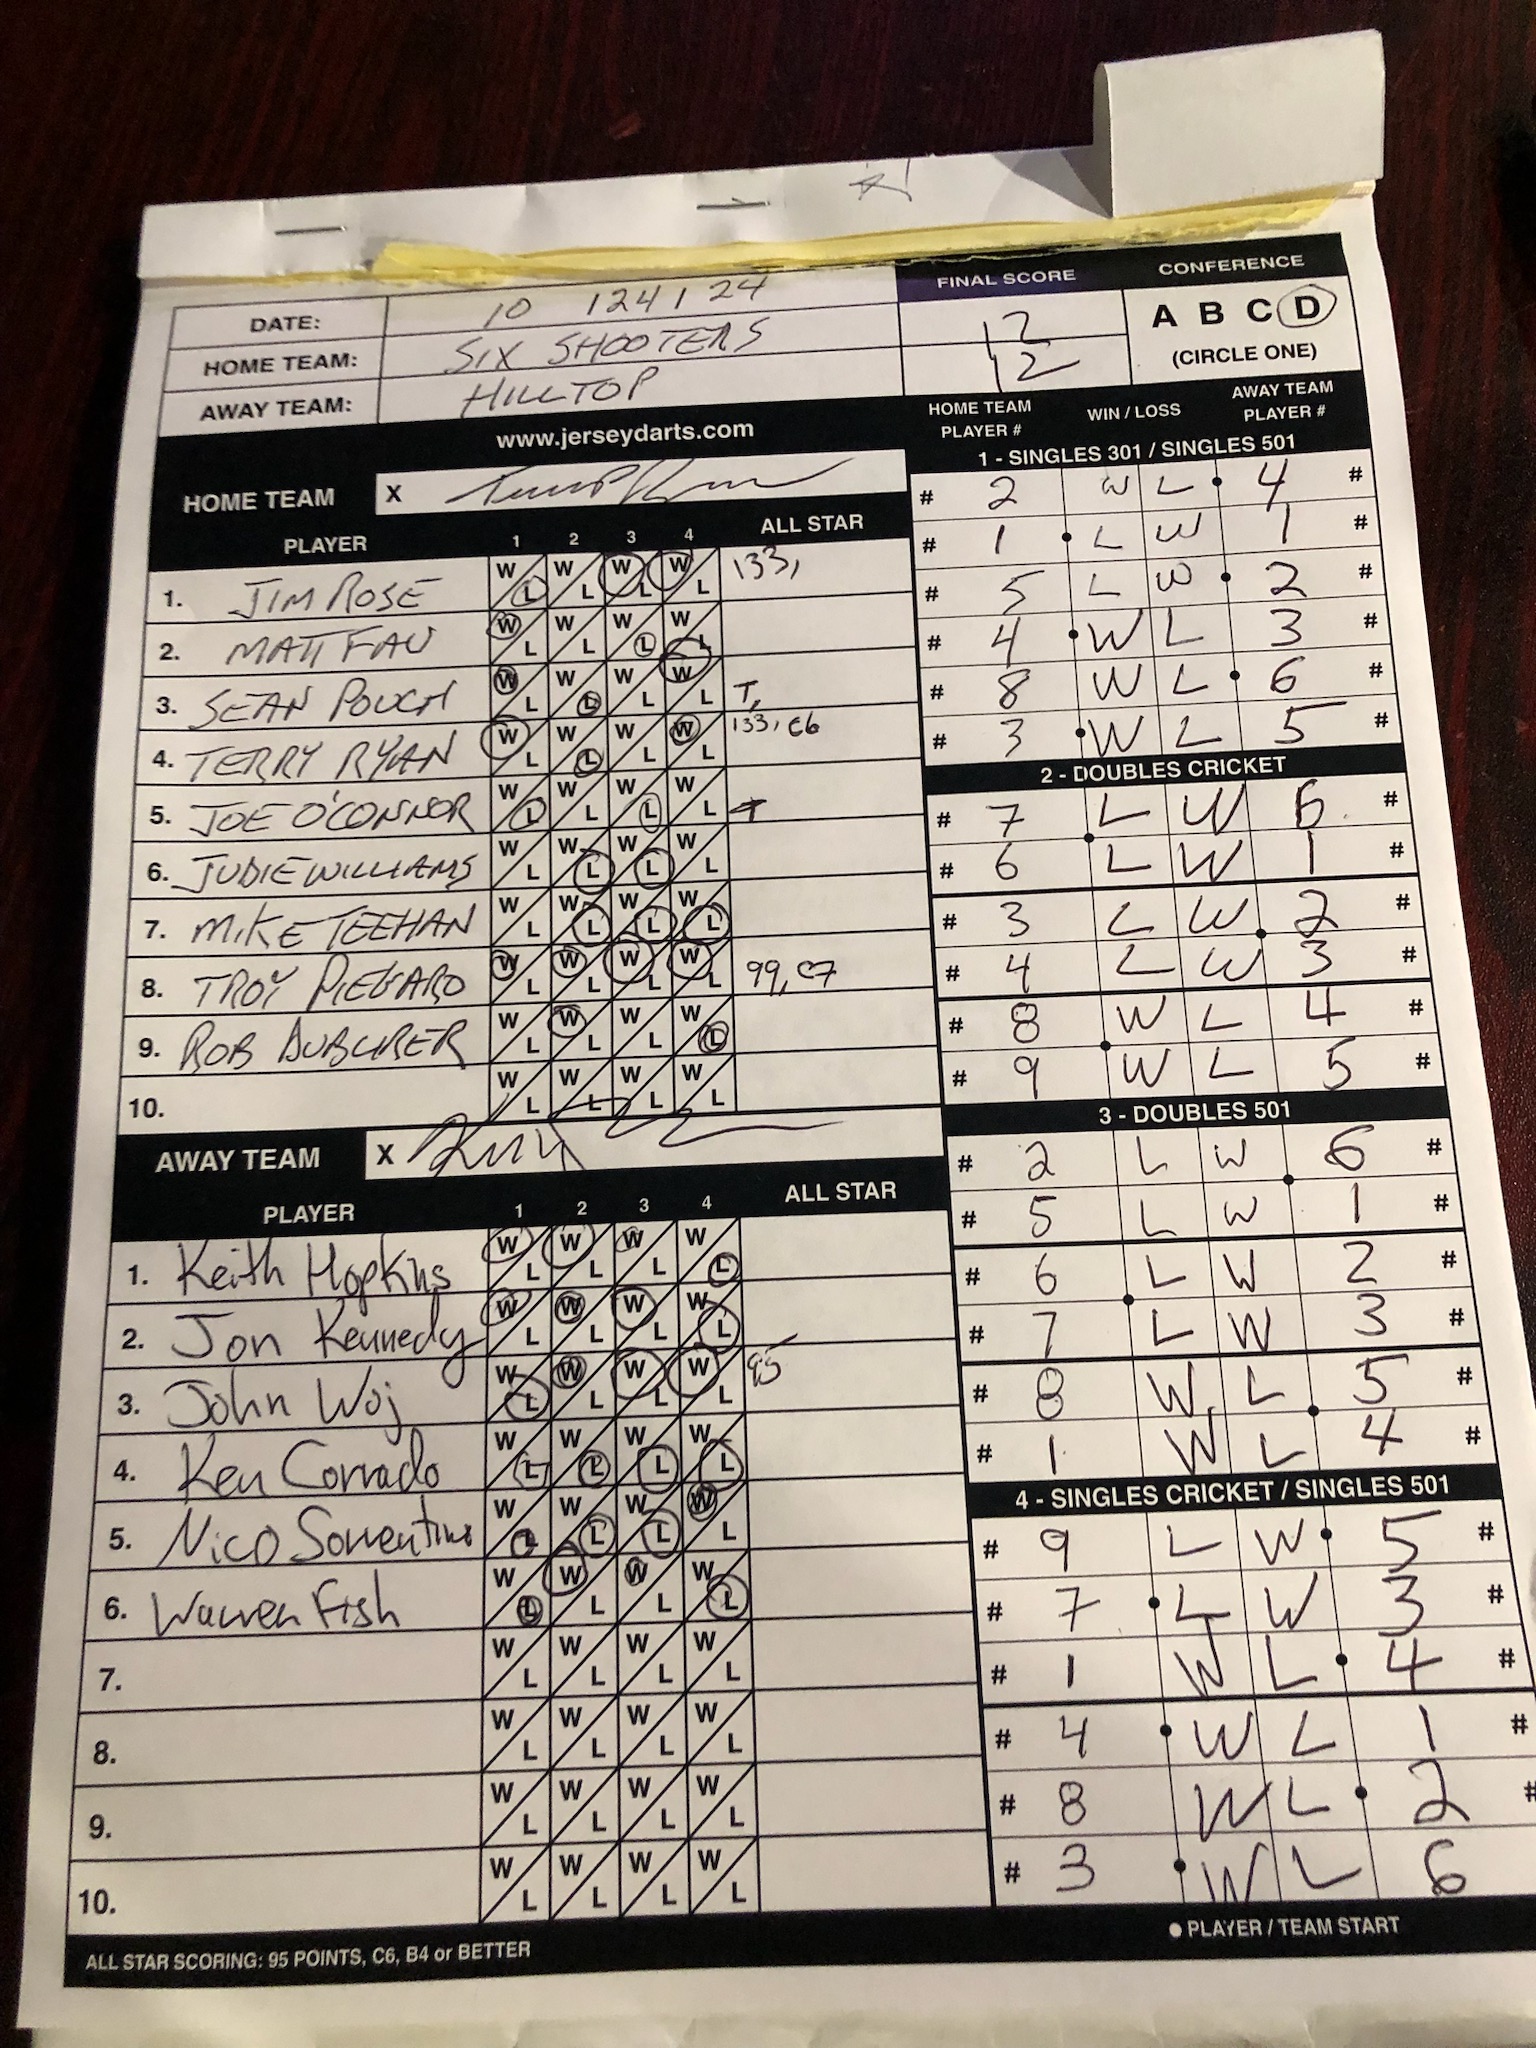 DATE: 10 124 1 24
HOME TEAM: SIX SHOOTERS
AWAY TEAM: HILLTOP
FINAL SCORE
12
12
CONFERENCE
A B C D
(CIRCLE ONE)
www.jerseydarts.com
HOME TEAM X
PLAYER 1 2 3 4 ALL STAR
1. JIM ROSE W L W L W L W L 133,
2. MATT FAU W L W L W L W L
3. SEAN POUCH W L W L W L W L T,
4. TERRY RYAN W L W L W L W L 133, C6
5. JOE O'CONNOR W L W L W L W L
6. JUDIE WILLIAMS W L W L W L W L
7. MIKE TEEHAN W L W L W L W L
8. TROY W L W L W L W L 99, C7
9. ROB W L W L W L W L
10. W L W L W L W L
AWAY TEAM X
PLAYER 1 2 3 4 ALL STAR
1. Keith Hopkins W L W L W L W L
2. Jon Kennedy W L W L W L W L
3. John Woj W L W L W L W L 95
4. Ken Corrado W L W L W L W L
5. Nico Sorrentino W L W L W L W L
6. Warren Fish W L W L W L W L
7. W L W L W L W L
8. W L W L W L W L
9. W L W L W L W L
10. W L W L W L W L
ALL STAR SCORING: 95 POINTS, C6, B4 or BETTER
HOME TEAM PLAYER # WIN / LOSS AWAY TEAM PLAYER #
1 - SINGLES 301 / SINGLES 501
# 2 W L 4 #
# 1 L W 1 #
# 5 L W 2 #
# 4 W L 3 #
# 8 W L 6 #
# 3 W L 5 #
2 - DOUBLES CRICKET
# 7 L W 6 #
# 6 L W 1 #
# 3 L W 2 #
# 4 L W 3 #
# 8 W L 4 #
# 9 W L 5 #
3 - DOUBLES 501
# 2 L W 6 #
# 5 L W 1 #
# 6 L W 2 #
# 7 L W 3 #
# 8 W L 5 #
# 1 W L 4 #
4 - SINGLES CRICKET / SINGLES 501
# 9 L W 5 #
# 7 L W 3 #
# 1 W L 4 #
# 4 W L 1 #
# 8 W L 2 #
# 3 W L 6
PLAYER / TEAM START